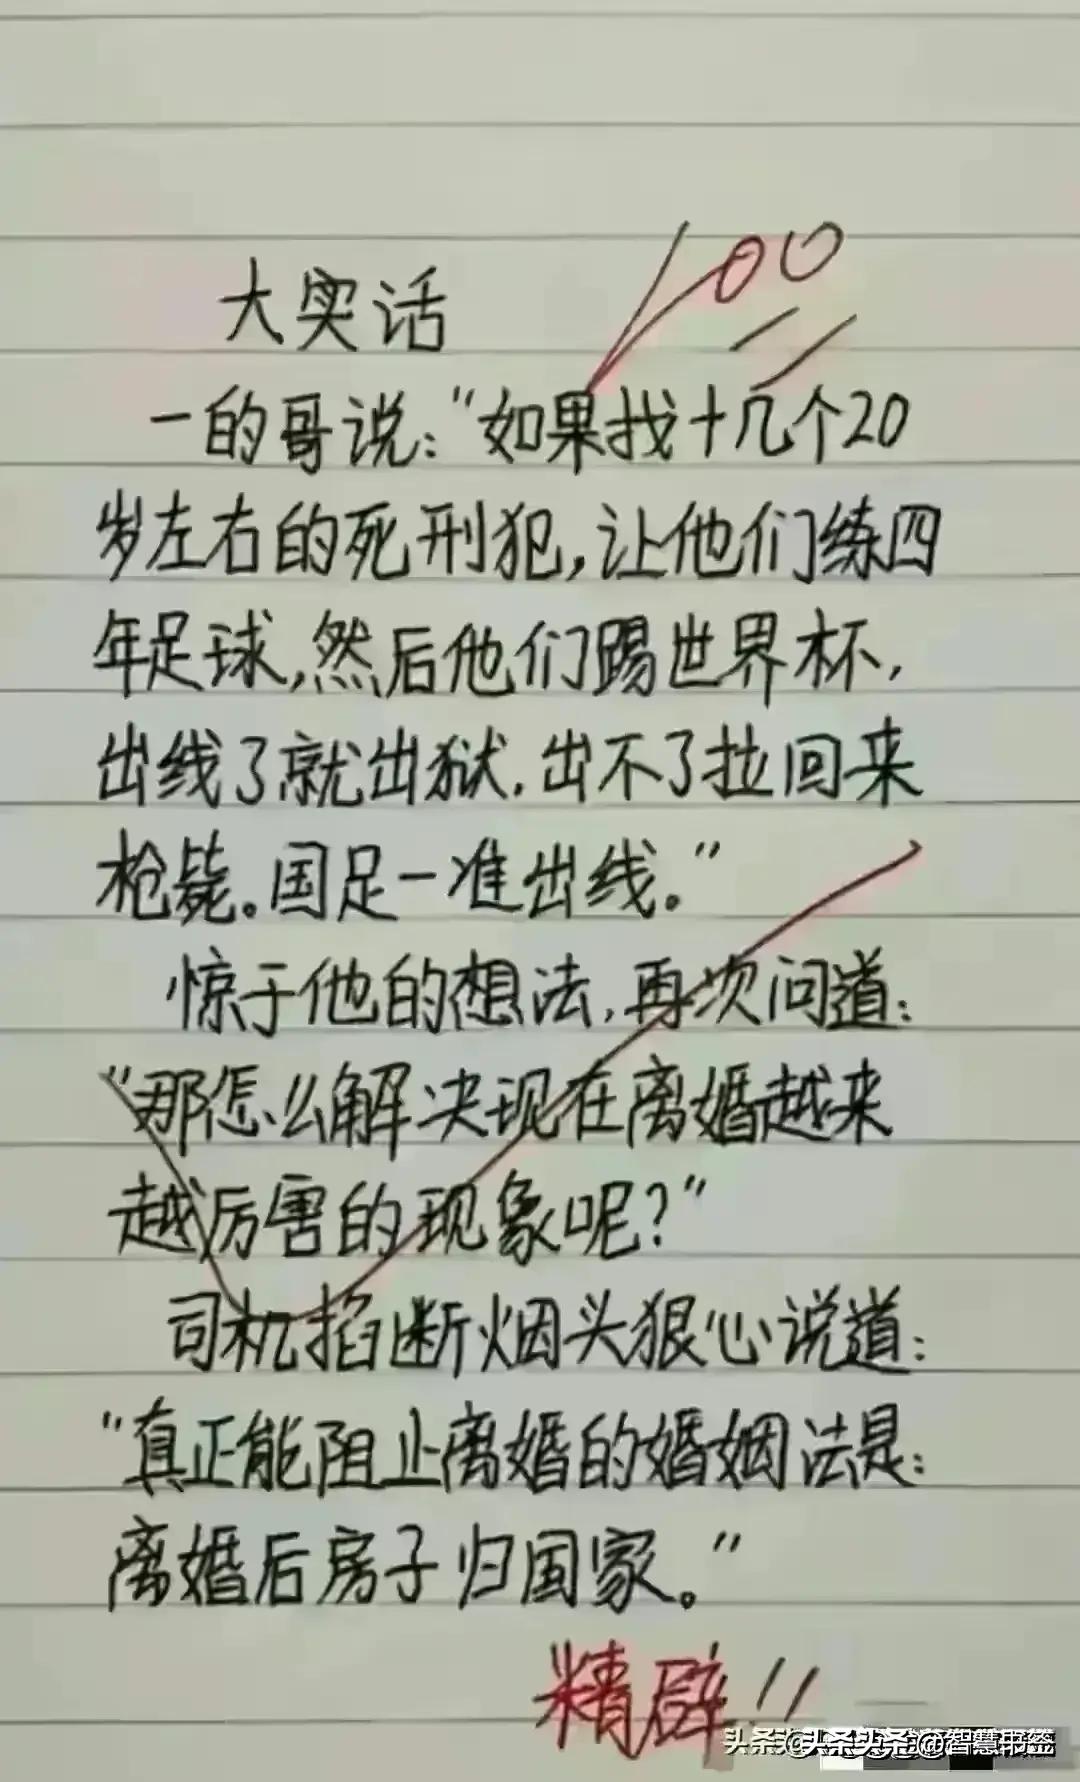 100
大实话
一的哥说：“如果找十几个20
岁左右的死刑犯，让他们练四
年足球，然后他们踢世界杯，
出线了就出狱．出不了拉回来
枪毙。国足一准出线。”
惊于他的想法，再次问道：
“那怎么解决现在离婚越来
越厉害的现象呢？”
司机掐断烟头狠心说道：
“真正能阻止离婚的婚姻法是：
离婚后房子归国家。”
精辟！！
头条@头条头条@智慧